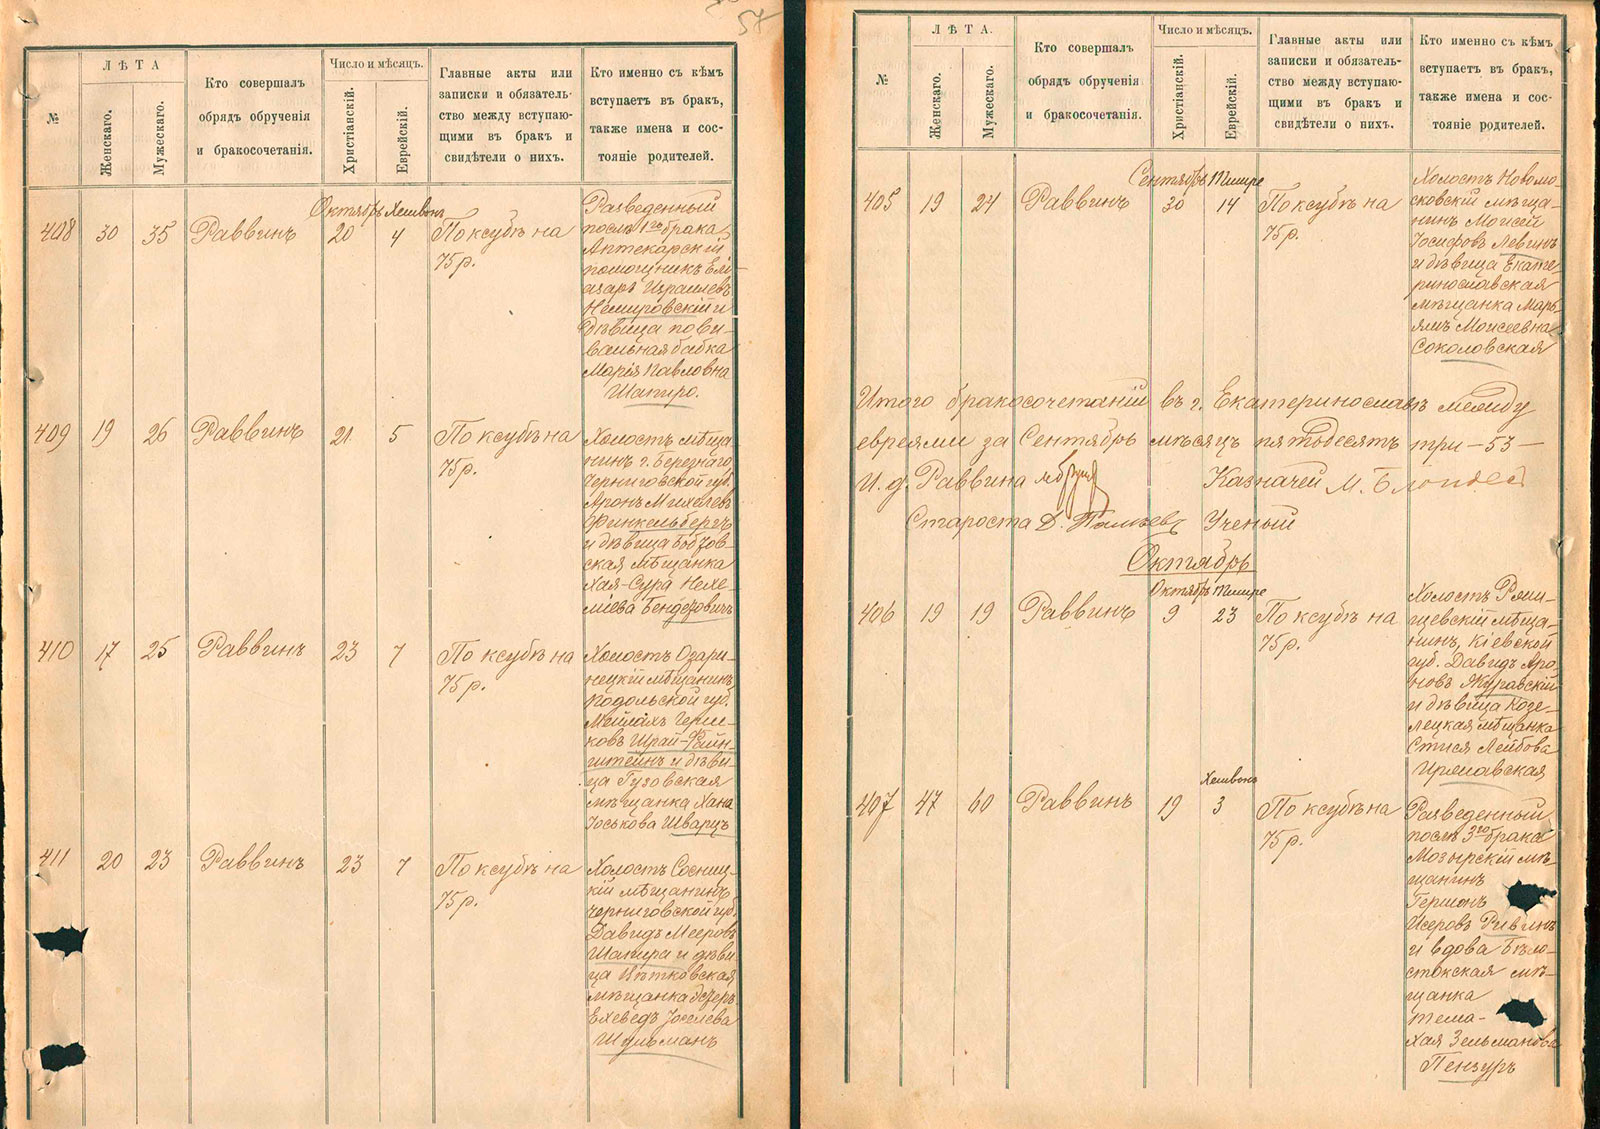 57
№
ЛѢТА
Женскаго.
Мужескаго.
Кто совершалъ
обрядъ обрученія
и бракосочетанія.
Число и мѣсяцъ.
Христіанскій.
Еврейскій.
Главные акты или
записки и обязатель-
ство между вступаю-
щими въ бракъ и
свидѣтели о нихъ.
Кто именно съ кѣмъ
вступаетъ въ бракъ,
также имена и сос-
тояніе родителей.
Октябрь Хешвонъ
408 30 35 Раввинъ 20 4 По ксубѣ на
75 р.
Разведенный
послѣ 1го брака
Аптекарскій
помощникъ Елі-
азаръ Израилевъ
Немировскій и
дѣвица пови-
вальная бабка
Марія Павловна
Шапиро.
409 19 26 Раввинъ 21 5 По ксубѣ на
75 р.
Холостъ мѣща-
нинъ г. Березнаго
Черниговской губ.
Аронъ Михелевъ
Финкельбергъ
и дѣвица
ская мѣщанка
Хая-Сура Нехе-
міева Бендеровичъ
410 17 25 Раввинъ 23 7 По ксубѣ на
75 р.
Холостъ Озари-
нецкій мѣщанинъ
Подольской губ.
Мейлахъ Герш-
ковъ Шрай-Файн-
штейнъ и дѣви-
ца Гузовская
мѣщанка Хана
Іоськова Шварцъ
411 20 23 Раввинъ 23 7 По ксубѣ на
75 р.
Холостъ Сосниц-
кій мѣщанинъ
Черниговской губ.
Давидъ Мееровъ
Шапира и дѣви-
ца Вѣтковская
мѣщанка Эстеръ
Ехеведъ Іоселева
Шульманъ
№
ЛѢТА.
Женскаго.
Мужескаго.
Кто совершалъ
обрядъ обрученія
и бракосочетанія.
Число и мѣсяцъ.
Христіанскій.
Еврейскій.
Главные акты или
записки и обязатель-
ство между вступаю-
щими въ бракъ и
свидѣтели о нихъ.
Кто именно съ кѣмъ
вступаетъ въ бракъ,
также имена и сос-
тояніе родителей.
Сентябрь Тишре
405 19 24 Раввинъ 30 14 По ксубѣ на
75 р.
Холостъ Новомо-
сковскій мѣща-
нинъ Моисей
Іосифовъ Левинъ
и дѣвица Екате-
ринославская
мѣщанка Марь-
ямъ Моисеевна
Соколовская
Итого бракосочетаній въ г. Екатеринославѣ между
евреями за Сентябрь мѣсяцъ пятьдесятъ три — 53 —
И. д. Раввина Казначей М.
Староста Ученый
Октябрь
Октябрь Тишре
406 19 19 Раввинъ 9 23 По ксубѣ на
75 р.
Холостъ Ржи-
щевскій мѣща-
нинъ, Кіевской
губ. Давидъ Аро-
новъ Журавскій
и дѣвица Козе-
лецкая мѣщанка
Стися Лейбова
Иржавская
Хешвонъ
407 47 60 Раввинъ 19 3 По ксубѣ на
75 р.
Разведенный
послѣ 3го брака
Мозырскій мѣ-
щанинъ
Гершонъ
Исеровъ Ривинъ
и вдова Бѣло-
стокская мѣ-
щанка
Тема-
Хая Зельманова
Пензуръ